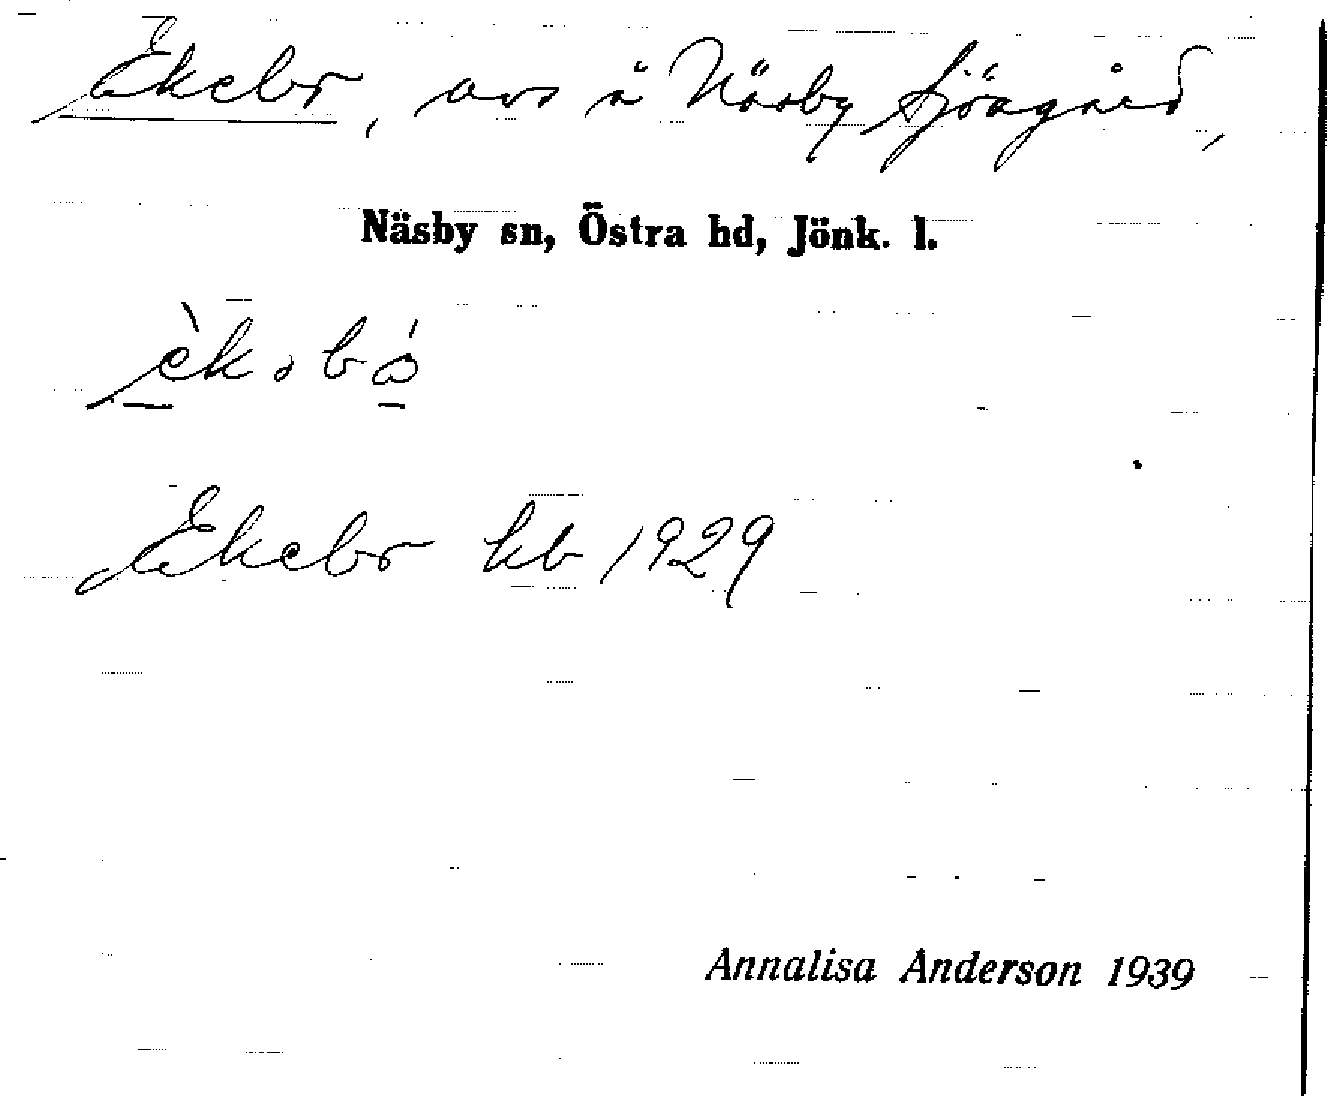 Ekebo, avs å Näsby Sjögård,
Näsby sn, Östra hd, Jönk. l.
èkəbó
Ekebo kb 1929
Annalisa Anderson 1939